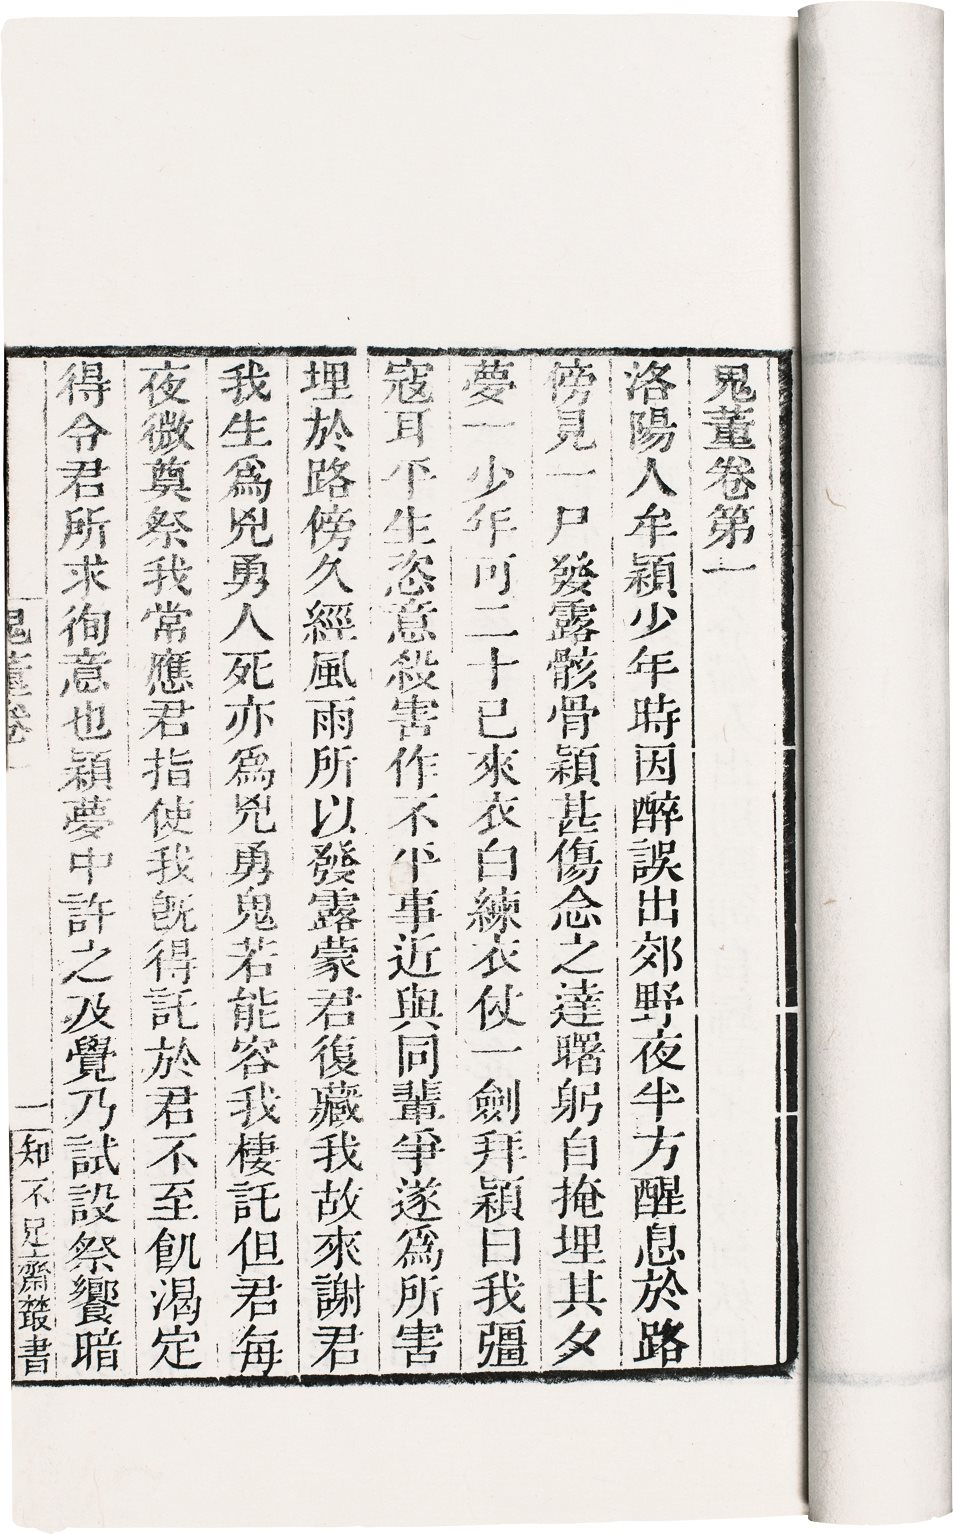 鬼董卷第一
洛陽人牟穎少年時因醉誤出郊野夜半方醒息於路
傍見一尸發露骸骨穎甚傷念之達曙躬自掩埋其夕
夢一少年可二十已來衣白練衣仗一劍拜穎曰我彊
寇耳平生恣意殺害作不平事近與同輩爭遂爲所害
埋於路傍久經風雨所以發露蒙君復藏我故來謝君
我生爲兇勇人死亦爲兇勇鬼若能容我棲託但君每
夜微奠祭我常應君指使我旣得託於君不至飢渴定
得令君所求徇意也穎夢中許之及覺乃試設祭饗暗
鬼董卷一
一
知不足齋叢書